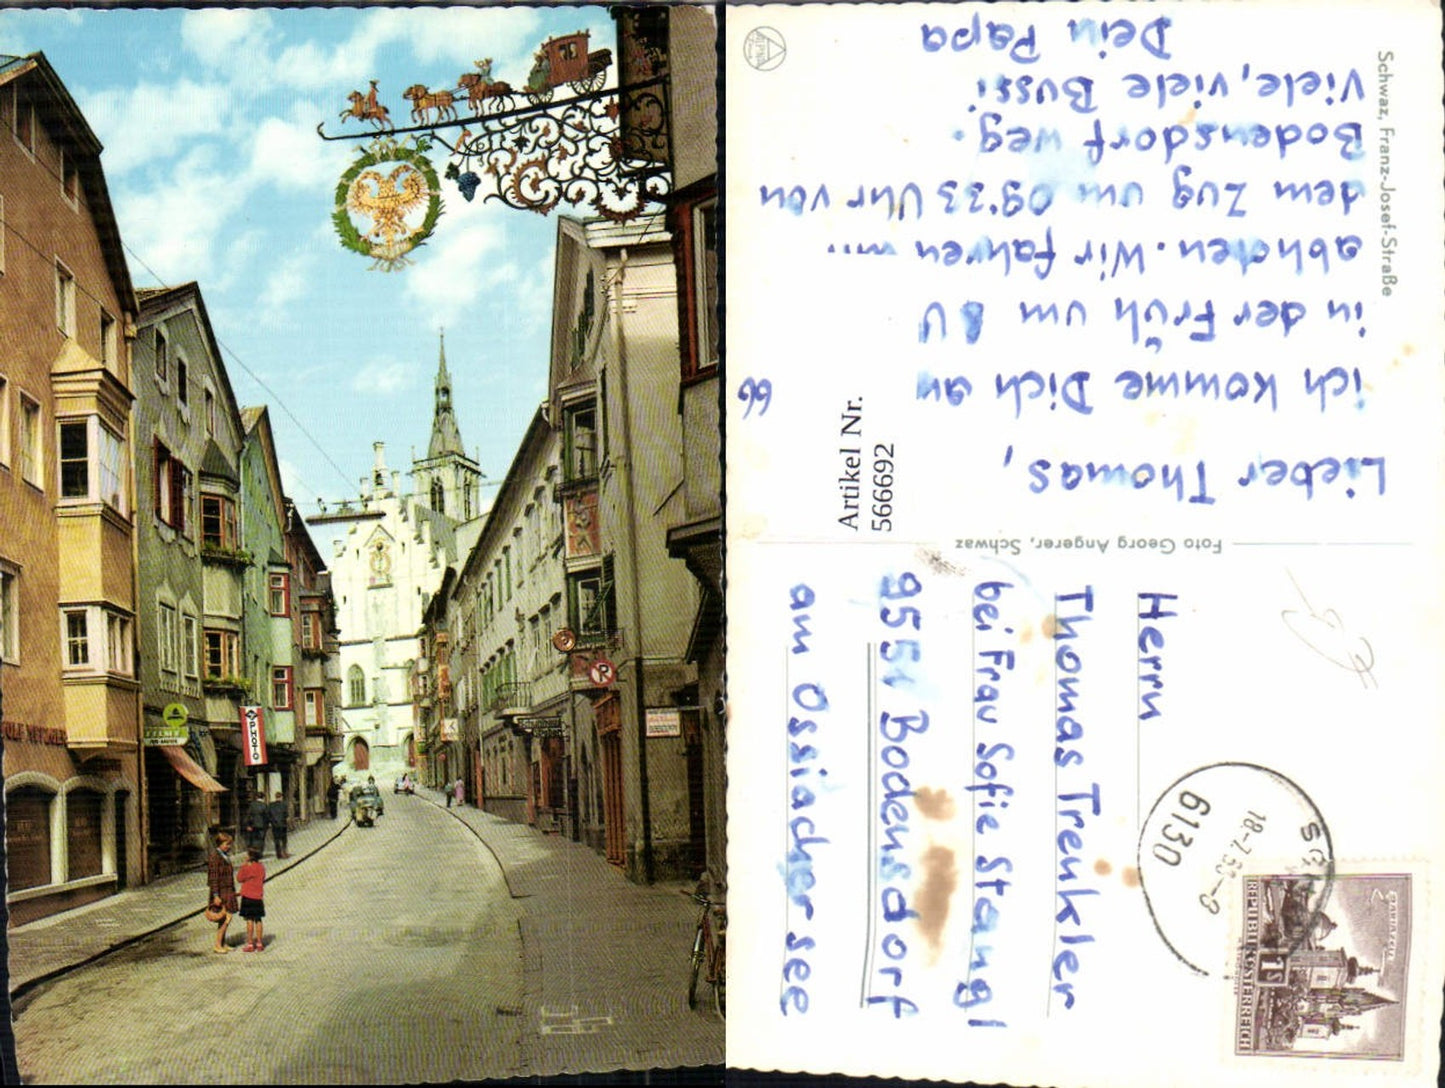 PHOTO
Schwaz, Franz-Josef-Straße
Lieber Thomas,
ich komme Dich am
in der Früh um
abholen. Wir fahren m..
dem Zug um 09:23 Uhr von
Bodensdorf weg.
Viele, viele Bussi
Dein Papa
66
Artikel Nr.
566692
Foto Georg Angerer, Schwaz
Herrn
Thomas Trenkler
bei Frau Sofie Stangl
9551 Bodensdorf
am Ossiacher see
6130
REPUBLIK ÖSTERREICH
1S